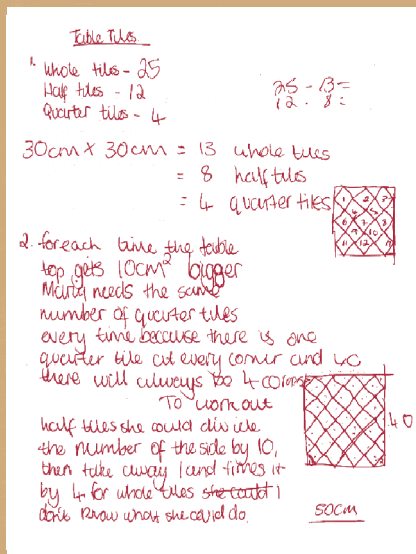 Table Tiles
1. Whole tiles - 25
Half tiles - 12
Quarter tiles - 4
25 - 13 =
12 - 8 =
30cm x 30cm = 13 whole tiles
= 8 half tiles
= 4 quarter tiles
1 2 3
4 5
6 7 8
9 10
11 12 13
2. for each time the table
top gets 10cm² bigger
Maria needs the same
number of quarter tiles
every time because there is one
quarter tile at every corner and
there will always be 4
To work out
half tiles she could divide
the number of the side by 10,
then take away 1 and times it
by 4. for whole tiles she could I
don't know what she could do.
40
50cm